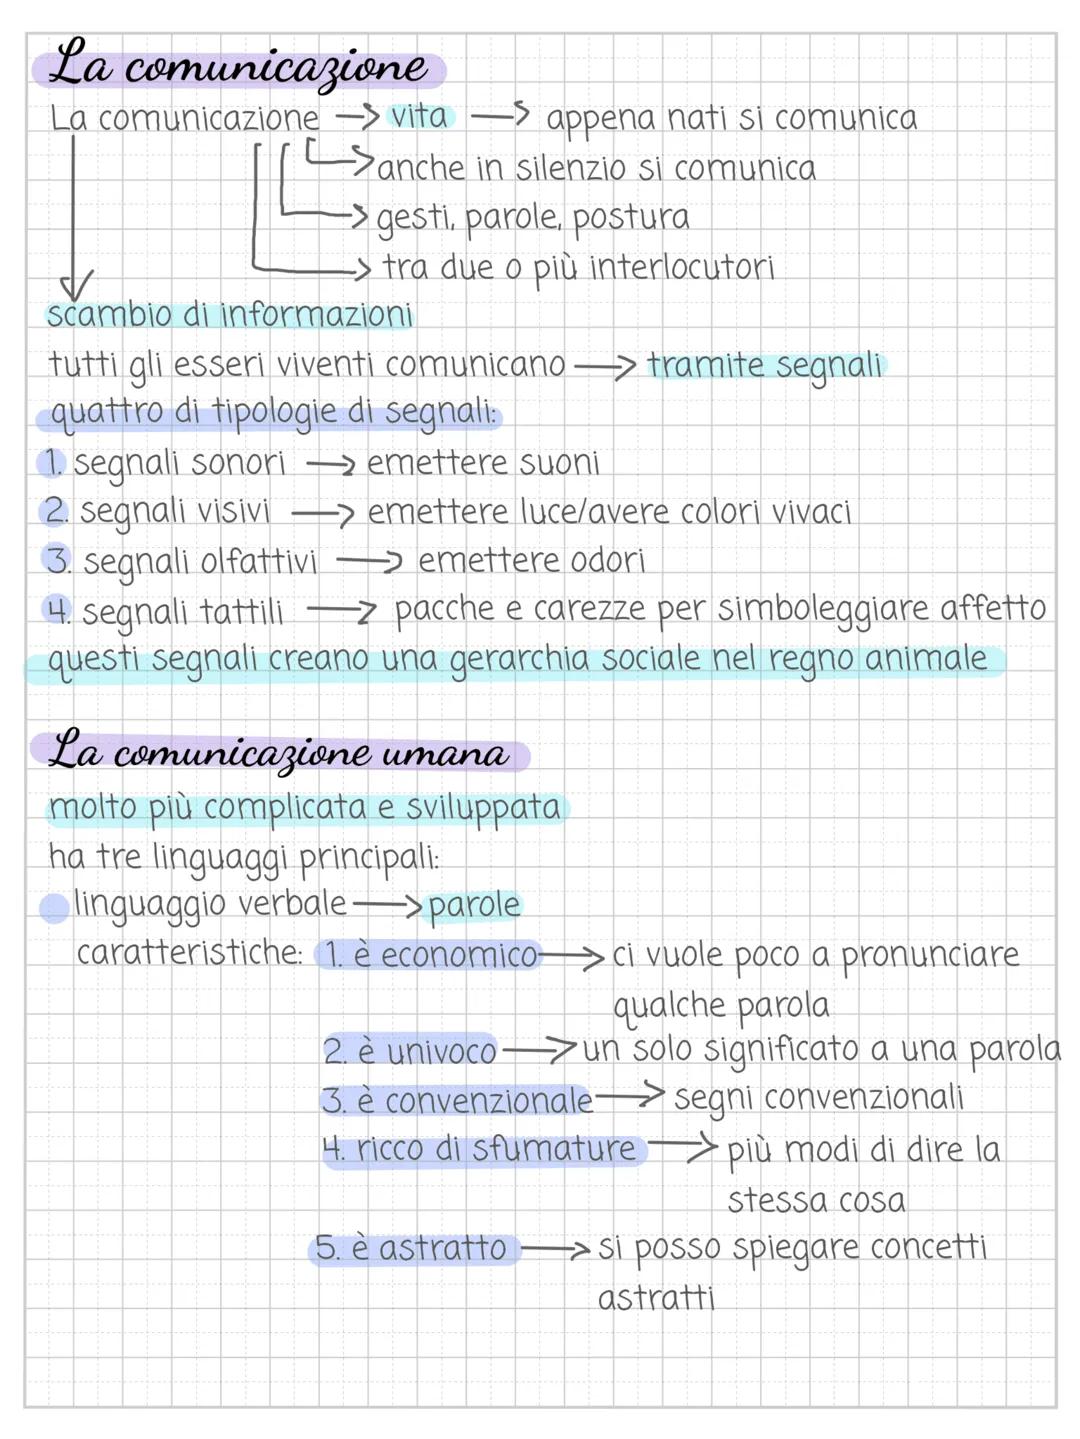 La comunicazione
La comunicazione → vita → appena nati si comunica
→ anche in silenzio si comunica
→ gesti, parole, postura
→ tra due o più interlocutori
scambio di informazioni
tutti gli esseri viventi comunicano → tramite segnali
quattro di tipologie di segnali:
1. segnali sonori → emettere suoni
2. segnali visivi → emettere luce/avere colori vivaci
3. segnali olfattivi → emettere odori
4. segnali tattili → pacche e carezze per simboleggiare affetto
questi segnali creano una gerarchia sociale nel regno animale
La comunicazione umana
molto più complicata e sviluppata
ha tre linguaggi principali:
linguaggio verbale → parole
caratteristiche: 1. è economico → ci vuole poco a pronunciare
qualche parola
2. è univoco → un solo significato a una parola
3. è convenzionale → segni convenzionali
4. ricco di sfumature → più modi di dire la
stessa cosa
5. è astratto → si posso spiegare concetti
astratti